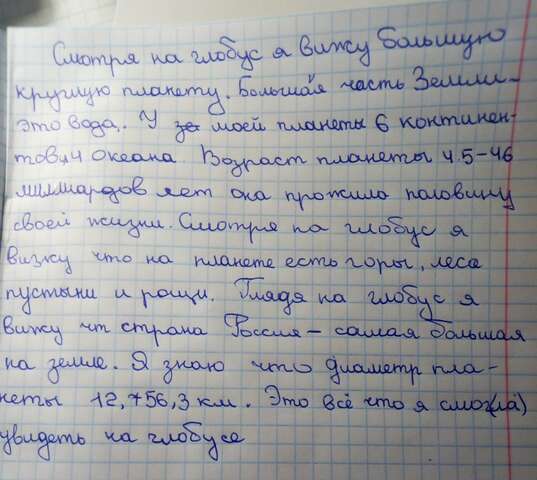 Смотря на глобус я вижу большую
круглую планету. Большая часть Земли-
это вода. У за моей планеты 6 континен-
тов и 4 океана. Возраст планеты 4.5-4.6
миллиардов лет она прожила половину
своей жизни. Смотря на глобус я
вижу что на планете есть горы, леса
пустыни и рощи. Глядя на глобус я
вижу чт страна Россия - самая большая
на земле. Я знаю что диаметр пла-
неты 12,756,3 км. Это всё что я смог(ла)
увидеть на глобусе